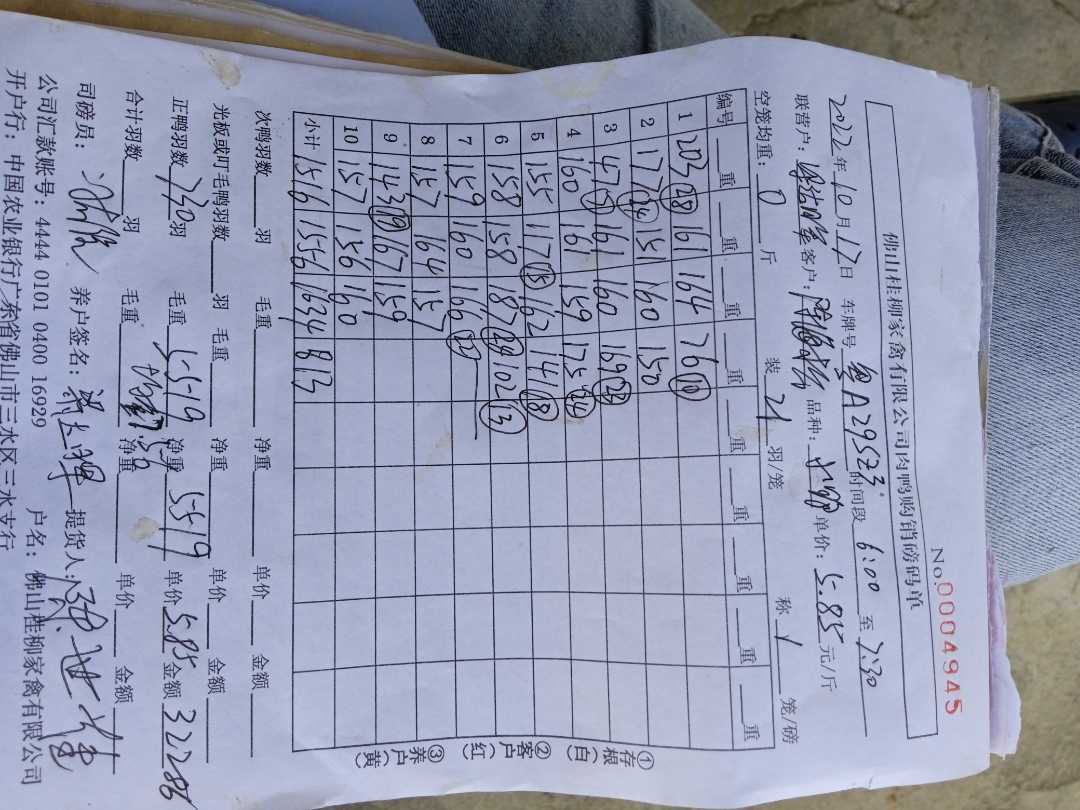 佛山桂柳家禽有限公司肉鸭购销磅码单
No.0004945
2022年10月17日 车牌号 粤A29523 时间段 6:00 至 7:30
联营户: 客户: 品种: 单价: 5.85 元/斤
空笼均重: 0 斤 装 21 羽/笼 称 1 笼/磅
编号 重 重 重 重 重 重 重 重 重
1 203 (28) 161 164 76 (10)
2 177 (24) 151 160 150
3 47 161 160 169 (23)
4 160 161 159 175 (24)
5 155 117 (15) 162 141 (18)
6 158 158 187 102 (13)
7 159 160 166
8 157 164 157
9 143 (19) 167 159
10 157 156 160
小计 1516 1556 1634 813
①存根(白) ②客户(红) ③养户(黄)
次鸭羽数 羽 毛重 净重 单价 金额
光板或叮毛鸭羽数 羽 毛重 净重 单价 金额
正鸭羽数 730 羽 毛重 5519 净重 5519 单价 5.85 金额 32286
合计羽数 羽 毛重 净重 单价 金额
司磅员: 养户签名: 提货人:
公司汇款账号: 4444 0101 0400 16929 户名: 佛山桂柳家禽有限公司
开户行: 中国农业银行广东省佛山市三水区三水支行